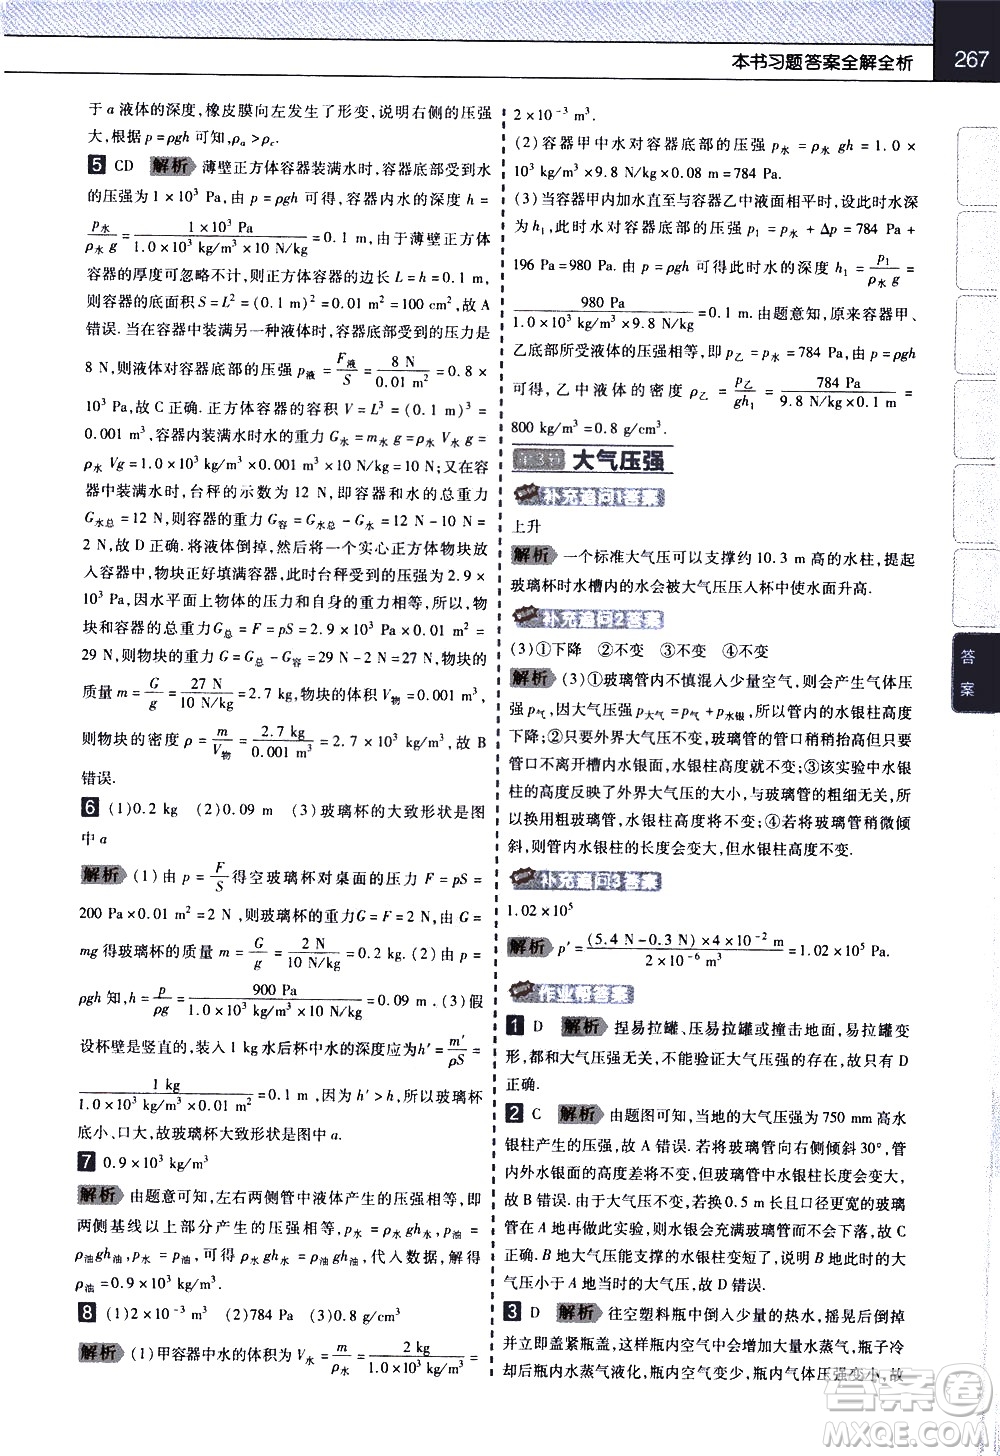 本书习题答案全解全析
267
于 a 液体的深度,橡皮膜向左发生了形变,说明右侧的压强
大,根据 p = ρgh 可知,ρa > ρc.
5 CD 解析 薄壁正方体容器装满水时,容器底部受到水
的压强为 1 × 10³ Pa,由 p = ρgh 可得,容器内水的深度 h =
p水/(ρ水 g) = (1 × 10³ Pa)/(1.0 × 10³ kg/m³ × 10 N/kg) = 0.1 m,由于薄壁正方体
容器的厚度可忽略不计,则正方体容器的边长 L = h = 0.1 m,
则容器的底面积 S = L² = (0.1 m)² = 0.01 m² = 100 cm²,故 A
错误.当在容器中装满另一种液体时,容器底部受到的压力是
8 N,则液体对容器底部的压强 p液 = F液/S = 8 N/0.01 m² = 0.8 ×
10³ Pa,故 C 正确.正方体容器的容积 V = L³ = (0.1 m)³ =
0.001 m³,容器内装满水时水的重力 G水 = m水 g = ρ水 V水 g =
ρ水 Vg = 1.0 × 10³ kg/m³ × 0.001 m³ × 10 N/kg = 10 N,当容
器中装满水时,台秤的示数为 12 N,即容器和水的总重力
G水总 = 12 N,则容器的重力 G容 = G水总 − G水 = 12 N − 10 N =
2 N,故 D 正确.将水倒掉,然后将一个实心正方体物块放
入容器中,物块正好填满容器,此时台秤受到的压强为 2.9 ×
10³ Pa,因水平面上物体的压力和自身的重力相等,所以,物
块和容器的总重力 G总 = F = pS = 2.9 × 10³ Pa × 0.01 m² =
29 N,则物块的重力 G = G总 − G容 = 29 N − 2 N = 27 N,物块的
质量 m = G/g = 27 N/10 N/kg = 2.7 kg,物块的体积 V物 = 0.001 m³,
则物块的密度 ρ = m/V物 = 2.7 kg/0.001 m³ = 2.7 × 10³ kg/m³,故 B
错误.
6 (1)0.2 kg (2)0.09 m (3)玻璃杯的大致形状是图
中 a
解析 (1)由 p = F/S 得空玻璃杯对桌面的压力 F = pS =
200 Pa × 0.01 m² = 2 N,则玻璃杯的重力 G = F = 2 N,由 G =
mg 得玻璃杯的质量 m = G/g = 2 N/10 N/kg = 0.2 kg. (2)由 p =
ρgh 知,h = p/ρg = 900 Pa/(1.0 × 10³ kg/m³ × 10 N/kg) = 0.09 m. (3)假
设杯壁是竖直的,装入 1 kg 水后杯中水的深度应为 h′ = m′/ρS =
1 kg/(1.0 × 10³ kg/m³ × 0.01 m²) = 0.1 m,因为 h′ > h,所以玻璃杯
底小、口大,故玻璃杯大致形状是图中 a.
7 0.9 × 10³ kg/m³
解析 由题意可知,左右两侧管中液体产生的压强相等,即
两侧基线以上部分产生的压强相等,p水 = ρ水 gh水,p油 =
ρ油 gh油,p水 = p油,可得 ρ水 gh水 = ρ油 gh油,代入数据,解得
ρ油 = 0.9 × 10³ kg/m³.
8 (1)2 × 10⁻³ m³ (2)784 Pa (3)0.8 g/cm³
解析 (1)甲容器中水的体积为 V水 = m/ρ水 = 2 kg/(1.0 × 10³ kg/m³) =
2 × 10⁻³ m³.
(2)容器甲中水对容器底部的压强 p水 = ρ水 gh = 1.0 ×
10³ kg/m³ × 9.8 N/kg × 0.08 m = 784 Pa.
(3)当容器甲内加水直至与容器乙中液面相平时,设此时水深
为 h₁,水对容器底部的压强 p₁ = p水 + Δp = 784 Pa +
196 Pa = 980 Pa.由 p = ρgh 可得此时水的深度 h₁ = p₁/(ρ水 g) =
980 Pa/(1.0 × 10³ kg/m³ × 9.8 N/kg) = 0.1 m.由题意知,原来容器甲、
乙底部所受液体的压强相等,即 p乙 = p水 = 784 Pa,由 p = ρgh
可得,乙中液体的密度 ρ乙 = p乙/gh₁ = 784 Pa/(9.8 N/kg × 0.1 m) =
800 kg/m³ = 0.8 g/cm³.
第3节 大气压强
补充追问1答案
上升
解析 一个标准大气压可以支撑约 10.3 m 高的水柱,提起
玻璃杯时水槽内的水会被大气压压入杯中使水面升高.
补充追问2答案
(3)①下降 ②不变 ③不变 ④不变
解析 (3)①玻璃管内不慎混入少量空气,则会产生气体压
强 p气,因为大气压强 p大气 = p气 + p水银,所以管内的水银柱高度
下降;②只要外界大气压不变,玻璃管的管口稍稍抬高而
管口不离开槽内水银面,水银柱高度就不变;③该实验中水银
柱的高度反映了外界大气压的大小,与玻璃管的粗细无关,所
以换用粗玻璃管,水银柱高度不变;④若玻璃管稍微倾
斜,管内水银柱的长度会变大,但水银柱高度不变.
补充追问3答案
1.02 × 10⁵
解析 p′ = (5.4 N − 0.3 N) × 4 × 10⁻² m/(2 × 10⁻⁶ m³) = 1.02 × 10⁵ Pa.
作业帮答案
1 D 解析 捏易拉罐、压易拉罐或撞击地面,易拉罐变
形,都和大气压强无关,不能验证大气压强的存在,故只有 D
正确.
2 C 解析 由题图可知,当地的大气压强为 750 mm 高水
银柱产生的压强,故 A 错误.若将玻璃管向右侧倾斜 30°,管
内外水银面的高度差将不变,但玻璃管中水银柱长度会变大,
故 B 错误.由于大气压不变,若将 0.5 m 长且口径更宽的玻璃
管在 A 地再做此实验,则水银会充满玻璃管而不会下落,故 C
正确.B 地大气压能支撑的水银柱变短了,说明 B 地此时的大
气压小于 A 地当时的大气压,故 D 错误.
3 D 解析 往空塑料瓶中倒入少量的热水,摇晃后倒掉
并立即盖紧瓶盖,这样瓶内空气中会增加大量水蒸气,瓶子冷
却后瓶内水蒸气液化,瓶内空气变少,瓶内气体压强变小,故
答
案
答案圈
MXQE.COM